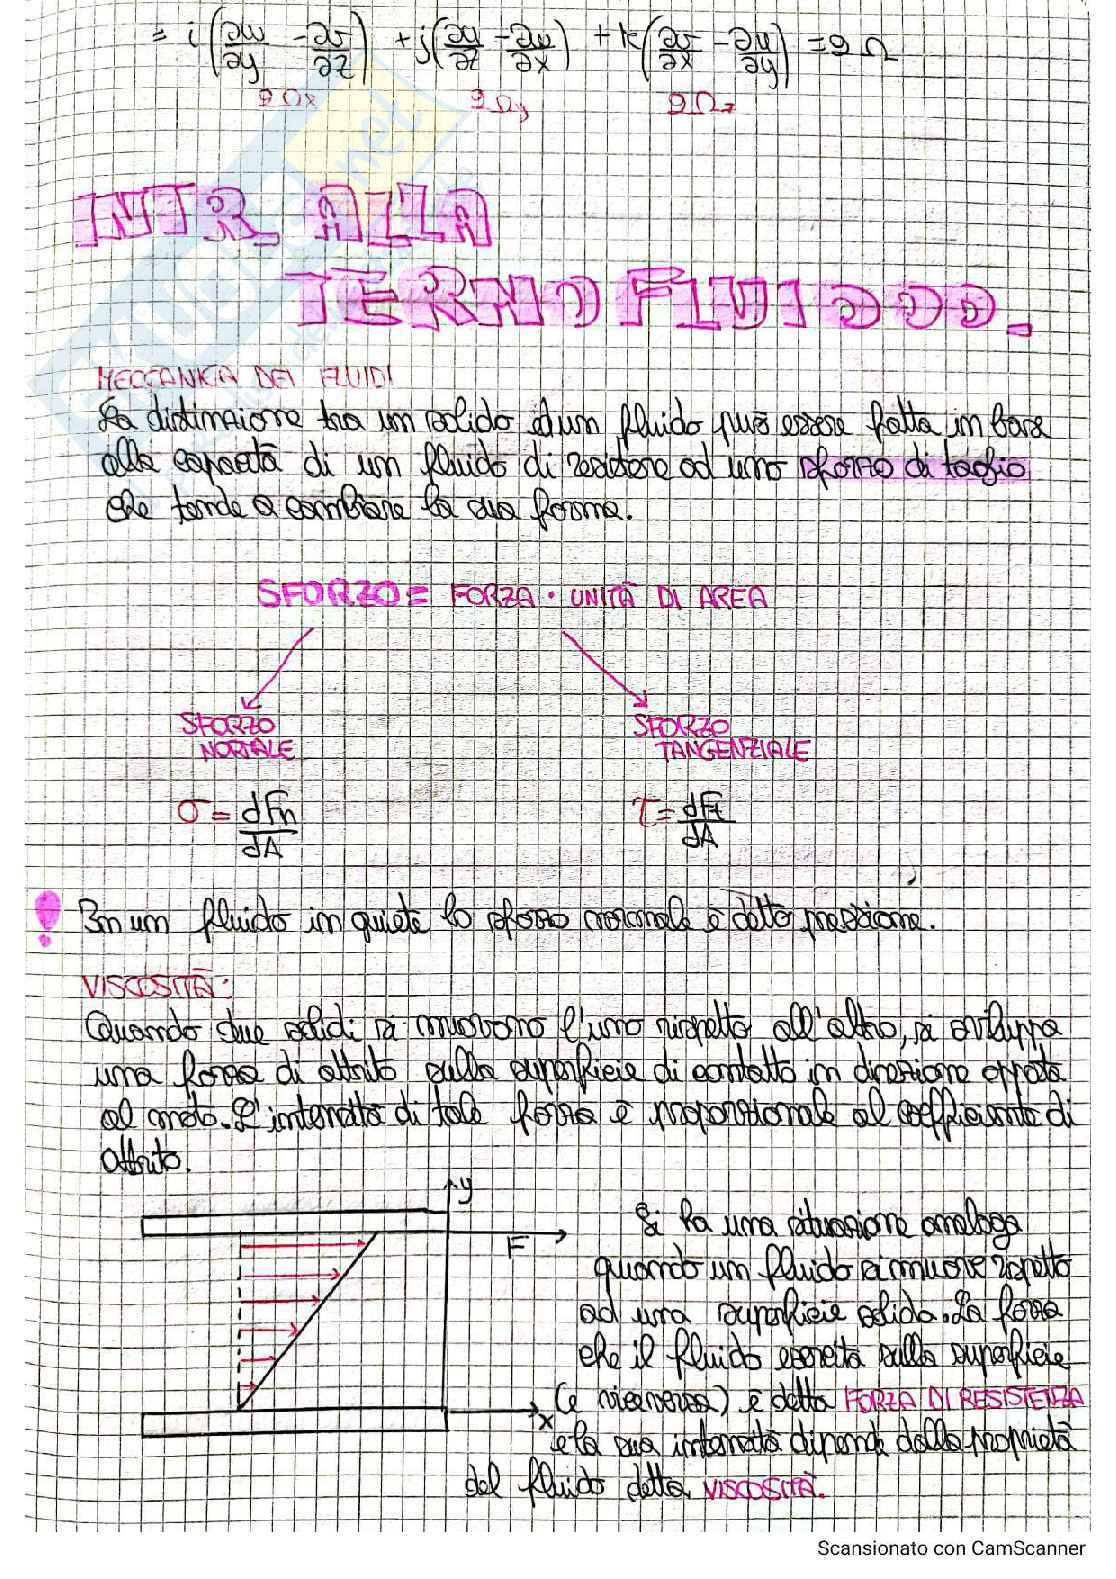 = i(∂w/∂y - ∂v/∂z) + j(∂u/∂z - ∂w/∂x) + k(∂v/∂x - ∂u/∂y) = 2 Ω
2Ωx 2Ωy 2Ωz
INTR. ALLA
TERMOFLUIDOD.
MECCANICA DEI FLUIDI
La distinzione tra un solido ed un fluido può essere fatta in base
alla capacità di un fluido di resistere ad uno sforzo di taglio
che tende a cambiare la sua forma.
SFORZO = FORZA · UNITÀ DI AREA
SFORZO NORMALE
SFORZO TANGENZIALE
σ = dFn/dA
τ = dFt/dA
! In un fluido in quiete lo sforzo normale è detto pressione.
VISCOSITÀ:
Quando due solidi si muovono l'uno rispetto all'altro, si sviluppa
una forza di attrito sulla superficie di contatto in direzione opposta
al moto. L'intensità di tale forza è proporzionale al coefficiente di
attrito.
y
F
x
Si ha una situazione analoga
quando un fluido si muove rispetto
ad una superficie solida. La forza
che il fluido esercita sulla superficie
(e viceversa) è detta FORZA DI RESISTENZA
e la sua intensità dipende dalla proprietà
del fluido detta VISCOSITÀ.
Scansionato con CamScanner